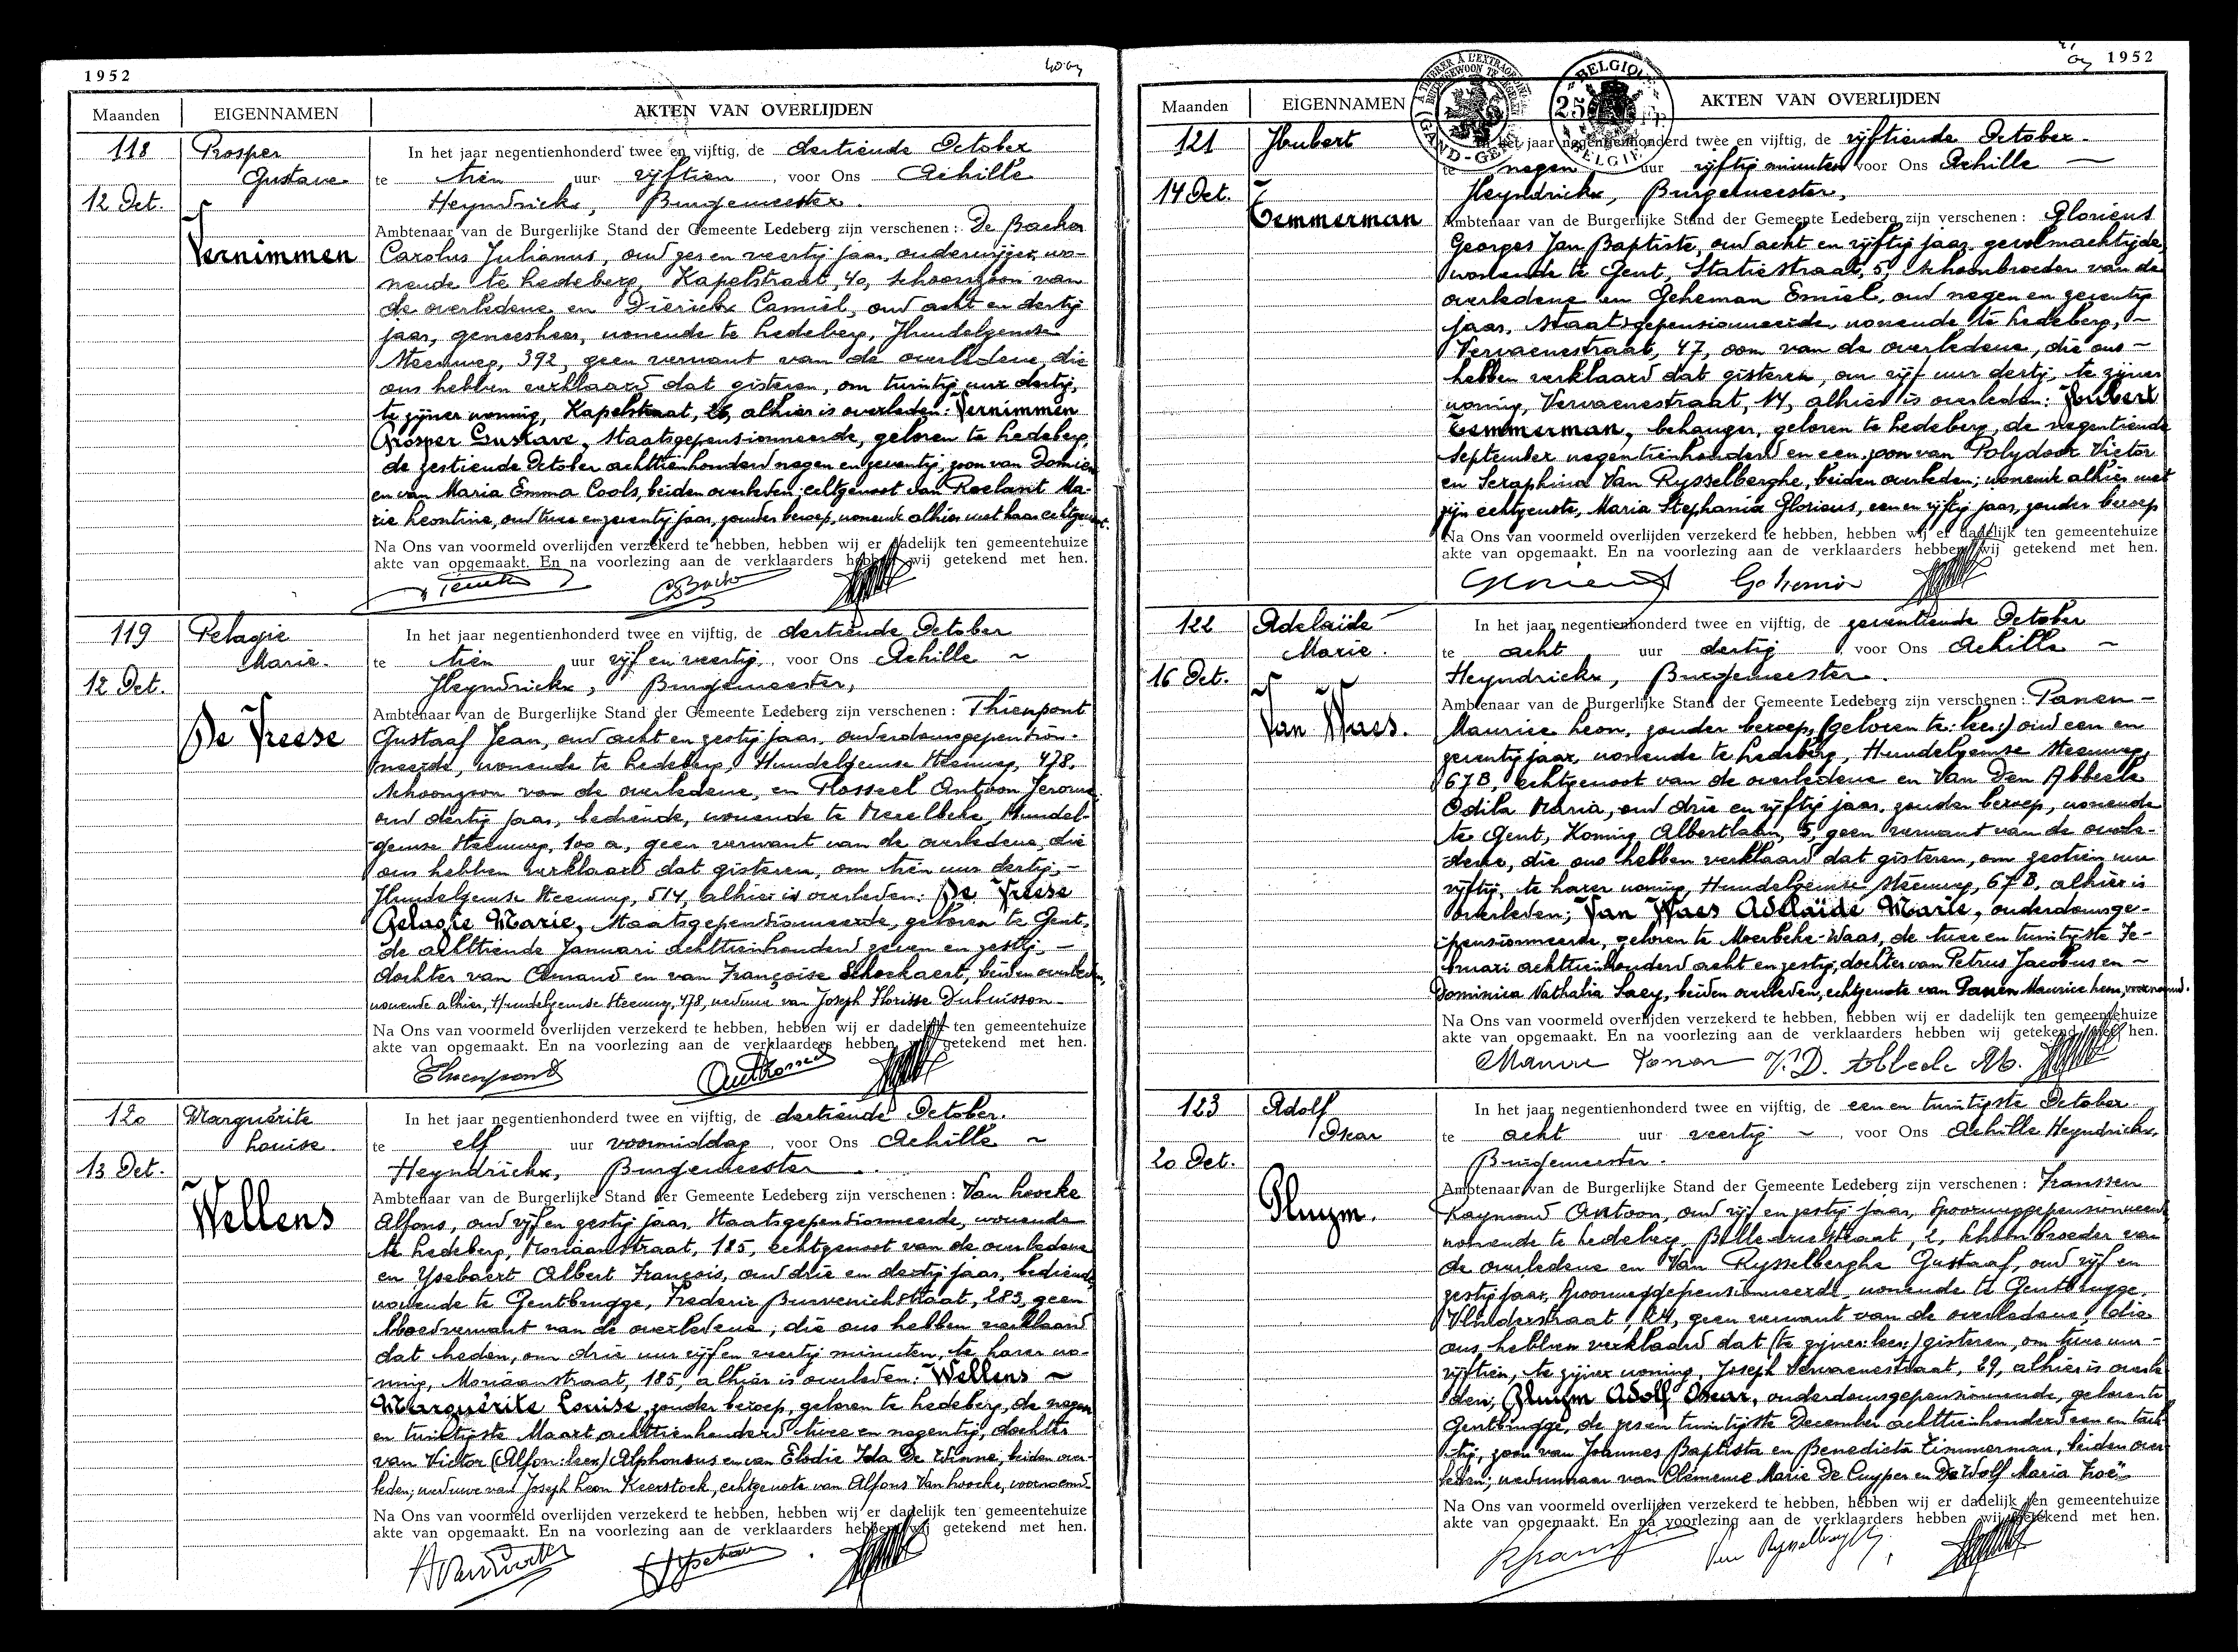 1952
Maanden EIGENNAMEN AKTEN VAN OVERLIJDEN
118 Prosper Gustave
12 Oct.
Vernimmen
In het jaar negentienhonderd twee en vijftig, de dertiende October
te tien uur vijftien, voor Ons Achille
Heyndrickx, Burgemeester.
Ambtenaar van de Burgerlijke Stand der Gemeente Ledeberg zijn verschenen: De Backer
Carolus Julianus, oud zes en veertig jaar, onderwijzer, wo-
nende te Ledeberg, Kapelstraat, 40, schoonzoon van
de overledene, en Dierickx Camiel, oud acht en dertig
jaar, geneesheer, wonende te Ledeberg, Hundelgemse
steenweg, 392, geen verwant van de overledene, die
ons hebben verklaard dat gisteren, om twintig uur dertig,
te zijner woning, Kapelstraat, 26, alhier is overleden: Vernimmen
Prosper Gustave, Staatsgepensionneerde, geboren te Ledeberg,
de zestiende October achttienhonderd negen en zeventig, zoon van Damien
en van Maria Emma Cools, beiden overleden, echtgenoot van Roelant Ma-
rie Leontine, oud twee en zeventig jaar, zonder beroep, wonende alhier met haar echtgenoot.
Na Ons van voormeld overlijden verzekerd te hebben, hebben wij er dadelijk ten gemeentehuize
akte van opgemaakt. En na voorlezing aan de verklaarders hebben wij getekend met hen.
119 Pelagie Marie.
12 Oct.
De Vreese
In het jaar negentienhonderd twee en vijftig, de dertiende October
te tien uur vijf en veertig, voor Ons Achille ~
Heyndrickx, Burgemeester,
Ambtenaar van de Burgerlijke Stand der Gemeente Ledeberg zijn verschenen: Thienpont
Gustaaf Jean, oud acht en zestig jaar, ouderdomsgepension-
neerde, wonende te Ledeberg, Hundelgemse steenweg, 478,
schoonzoon van de overledene, en Rosseel Antoon Jerome,
oud dertig jaar, bediende, wonende te Merelbeke, Hundel-
gemse steenweg, 100 a, geen verwant van de overledene, die
ons hebben verklaard dat gisteren, om tien uur dertig, -
Hundelgemse steenweg, 514, alhier is overleden: De Vreese
Pelagie Marie, Staatsgepensionneerde, geboren te Gent,
de achttiende Januari achttienhonderd zeven en zestig -
dochter van Amand en van Françoise Schockaert, beiden overleden,
wonende alhier, Hundelgemse steenweg, 478, weduwe van Joseph Florisse Dubuisson -
Na Ons van voormeld overlijden verzekerd te hebben, hebben wij er dadelijk ten gemeentehuize
akte van opgemaakt. En na voorlezing aan de verklaarders hebben wij getekend met hen.
Thienpont
120 Marguérite Louise.
13 Oct.
Wellens
In het jaar negentienhonderd twee en vijftig, de dertiende October.
te elf uur voormiddag, voor Ons Achille ~
Heyndrickx, Burgemeester.
Ambtenaar van de Burgerlijke Stand der Gemeente Ledeberg zijn verschenen: Van Hoecke
Alfons, oud vijf en zestig jaar, Staatsgepensionneerde, wonende
te Ledeberg, Moriaanstraat, 185, echtgenoot van de overledene
en Ysebaert Albert François, oud drie en dertig jaar, bediende,
wonende te Gentbrugge, Frederic Burvenichstraat, 283, geen
bloedverwant van de overledene, die ons hebben verklaard
dat heden, om drie uur vijf en veertig minuten, te harer wo-
ning, Moriaanstraat, 185, alhier is overleden: Wellens ~
Marguérite Louise, zonder beroep, geboren te Ledeberg, de negen
en twintigste Maart achttienhonderd twee en negentig, dochter
van Victor (Alfon: lees) Alphonsus en van Elodie Ida De Winne, beiden over-
leden; weduwe van Joseph Leon Keerstock, echtgenote van Alfons Van Hoecke, voornoemd.
Na Ons van voormeld overlijden verzekerd te hebben, hebben wij er dadelijk ten gemeentehuize
akte van opgemaakt. En na voorlezing aan de verklaarders hebben wij getekend met hen.
1952
Maanden EIGENNAMEN AKTEN VAN OVERLIJDEN
BELGIQUE 25 Fr. BELGIE
GAND-GENT
121 Hubert
14 Oct.
Temmerman
In het jaar negentienhonderd twee en vijftig, de vijftiende October -
te negen uur vijftig minuten voor Ons Achille -
Heyndrickx, Burgemeester,
Ambtenaar van de Burgerlijke Stand der Gemeente Ledeberg zijn verschenen: Glorieus
Georges Jan Baptiste, oud acht en vijftig jaar, gevolmachtigde,
wonende te Gent, Statiestraat, 5, schoonbroeder van de
overledene en Geheman Emiel, oud negen en zeventig
jaar, Staatsgepensionneerde, wonende te Ledeberg, ~
Vervaenestraat, 47, oom van de overledene, die ons ~
hebben verklaard dat gisteren, om vijf uur dertig, te zijner
woning, Vervaenestraat, 14, alhier is overleden: Hubert
Temmerman, behanger, geboren te Ledeberg, de negentiende
September negentienhonderd en een, zoon van Polydoor Victor
en Seraphina Van Rysselberghe, beiden overleden; wonende alhier met
zijn echtgenote, Maria Stephania Glorieus, een en vijftig jaar, zonder beroep
Na Ons van voormeld overlijden verzekerd te hebben, hebben wij er dadelijk ten gemeentehuize
akte van opgemaakt. En na voorlezing aan de verklaarders hebben wij getekend met hen.
122 Adelaïde Marie.
16 Oct.
Van Waes.
In het jaar negentienhonderd twee en vijftig, de zeventiende October
te acht uur dertig, voor Ons Achille ~
Heyndrickx, Burgemeester.
Ambtenaar van de Burgerlijke Stand der Gemeente Ledeberg zijn verschenen: Panen -
Maurice Leon, zonder beroep, (geboren te: lees:) oud een en
zeventig jaar, wonende te Ledeberg, Hundelgemse steenweg,
67B, echtgenoot van de overledene en Van Den Abbeele
Odila Maria, oud drie en vijftig jaar, zonder beroep, wonende
te Gent, Koning Albertlaan, 5, geen verwant van de overle-
dene, die ons hebben verklaard dat gisteren, om zestien uur
vijftig, te harer woning, Hundelgemse steenweg, 67B, alhier is
overleden; Van Waes Adelaïde Marie, ouderdomsge-
pensionneerde, geboren te Moerbeke-Waas, de twee en twintigste Fe-
bruari achttienhonderd acht en zestig, dochter van Petrus Jacobus en ~
Dominica Nathalia Saey, beiden overleden, echtgenote van Panen Maurice Leon, voornoemd.
Na Ons van voormeld overlijden verzekerd te hebben, hebben wij er dadelijk ten gemeentehuize
akte van opgemaakt. En na voorlezing aan de verklaarders hebben wij getekend met hen.
123 Adolf Oscar
20 Oct.
Pluym.
In het jaar negentienhonderd twee en vijftig, de een en twintigste October
te acht uur veertig ~, voor Ons Achille Heyndrickx,
Burgemeester.
Ambtenaar van de Burgerlijke Stand der Gemeente Ledeberg zijn verschenen: Franssen
Raymond Antoon, oud vijf en zestig jaar, spoorweggepensionneerde
wonende te Ledeberg, Bellevuestraat, 2, schoonbroeder van
de overledene en Van Rysselberghe Gustaaf, oud vijf en
zestig jaar, spoorweggepensionneerde, wonende te Gentbrugge,
Vlinderstraat, 24, geen verwant van de overledene, die
ons hebben verklaard dat (te zijner: lees:) gisteren, om twee uur -
vijftien, te zijner woning, Joseph Vervaenestraat, 29, alhier is overle-
den; Pluym Adolf Oscar, ouderdomsgepensionneerde, geboren te
Gentbrugge, de zes en twintigste December achttienhonderd een en tach-
tig, zoon van Joannes Baptista en Benedicta Timmerman, beiden over-
leden; weduwnaar van Clemence Marie De Cuyper en De Wolf Maria Zoë -
Na Ons van voormeld overlijden verzekerd te hebben, hebben wij er dadelijk ten gemeentehuize
akte van opgemaakt. En na voorlezing aan de verklaarders hebben wij getekend met hen.